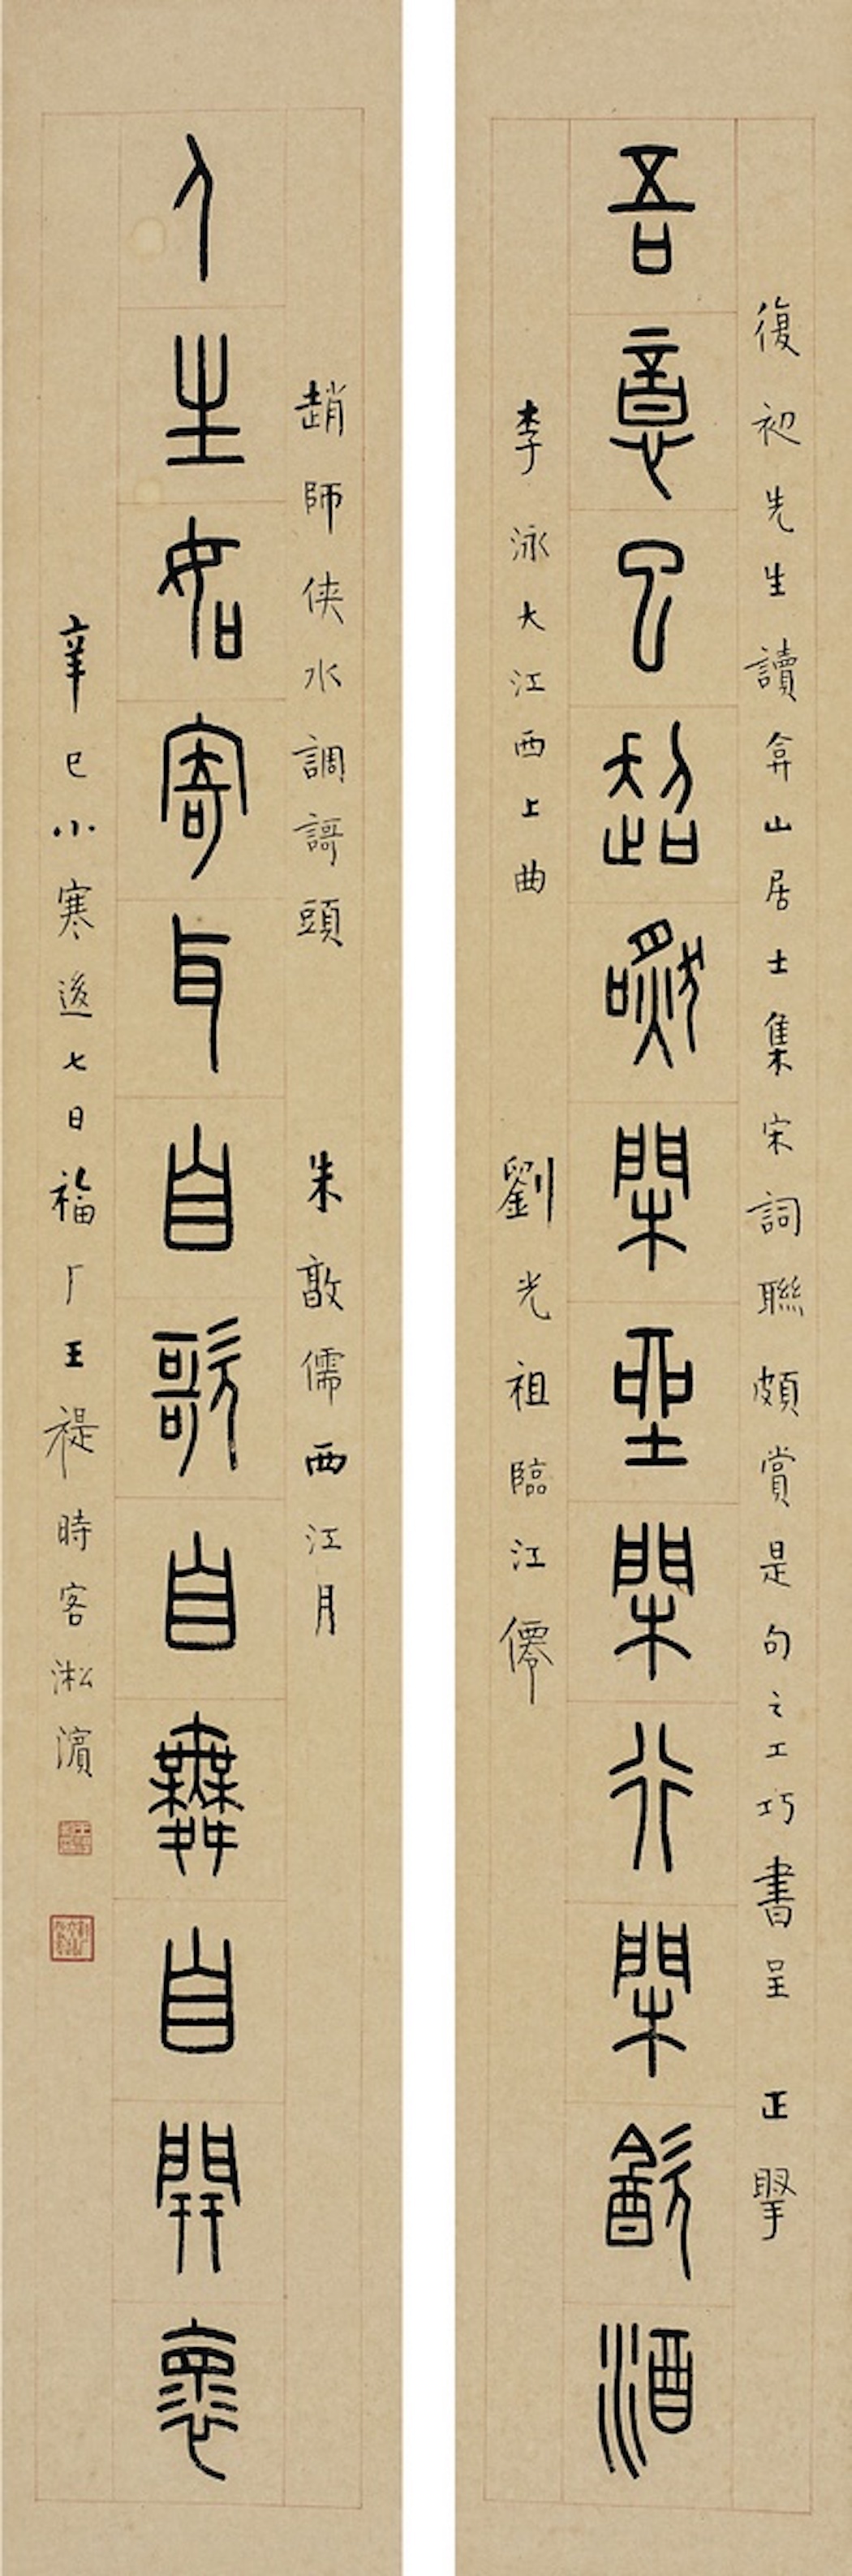 復初先生讀弇山居士集宋詞聯頗賞是句之工巧書呈 正掔
吾意已超然閑坐閑行閑飲酒
李泳大江西上曲 劉光祖臨江僊
趙師侠水調謌頭 朱敦儒西江月
人生如寄耳自歌自舞自開懷
辛巳小寒後七日福厂王禔時客淞濱